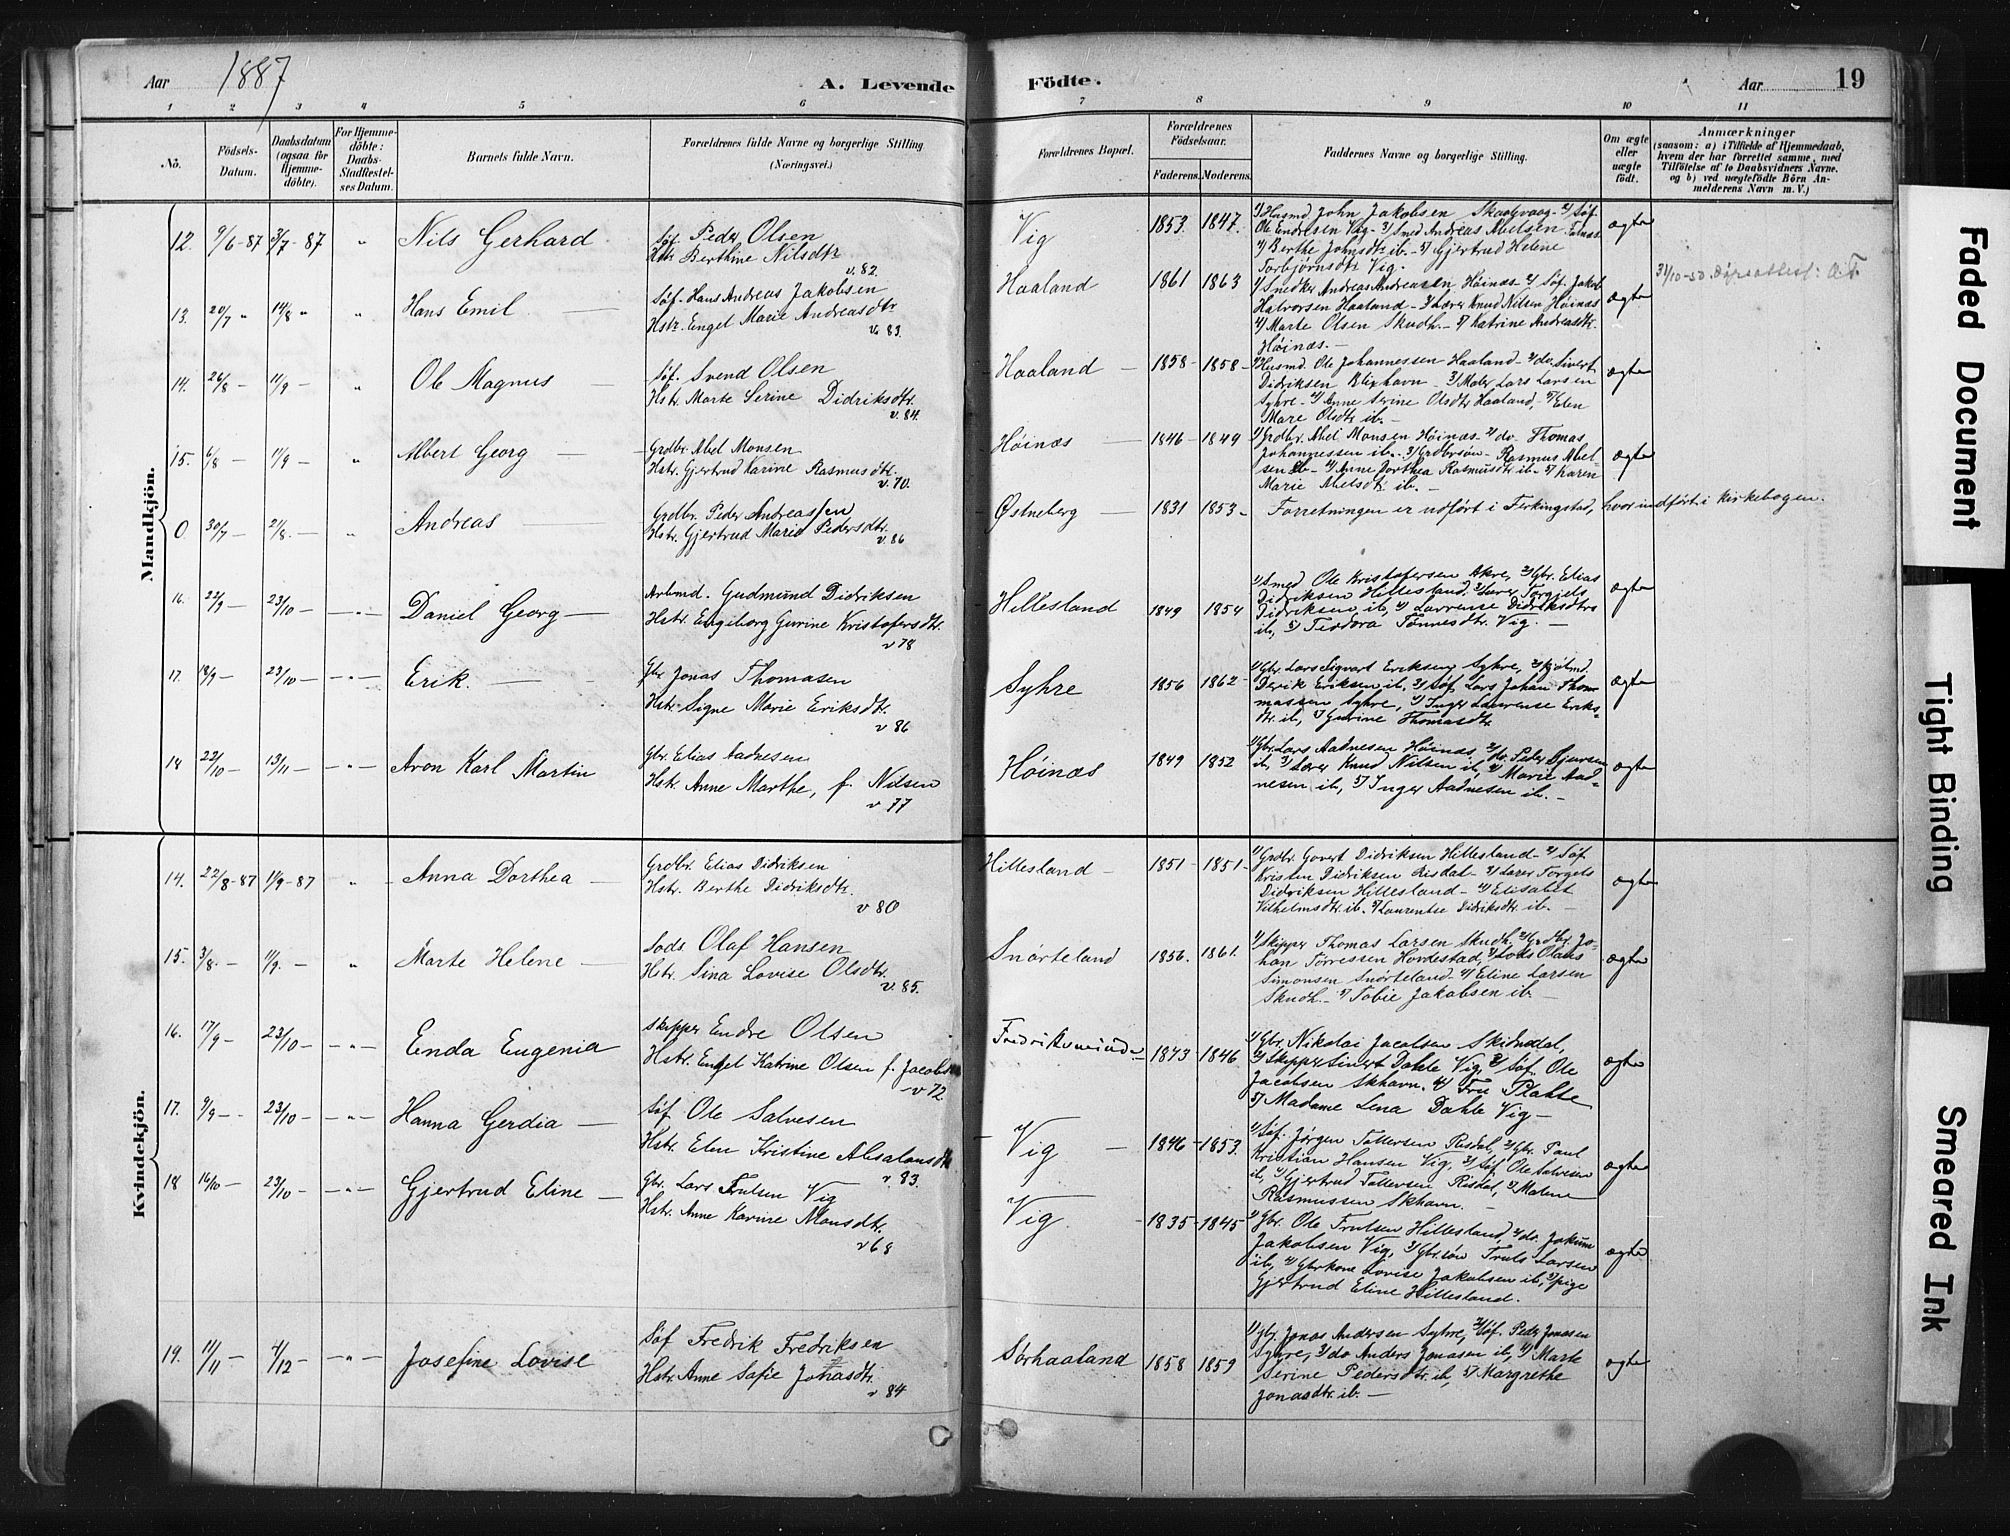 Aar 1887 A. Levende Födte. Aar 19
1 2 3 4 5 6 7 8 9 10 11
No.
Födsels-Datum.
Daabsdatum (ogsaa for Hjemmedöbte).
For Hjemmedöbte: Daabs-Stadfæstelses Datum.
Barnets fulde Navn.
Forældrenes fulde Navne og borgerlige Stilling (Næringsvei.)
Forældrenes Bopæl.
Forældrenes Födselsaar.
Faderens. Moderens.
Faddernes Navne og borgerlige Stilling.
Om ægte eller uægte födt.
Anmærkninger
(saasom: a) i Tilfælde af Hjemmedaab, hvem der har forrettet samme, med Tilföielse af to Daabsvidners Navne, og b) ved uægtefödte Börn Anmelderens Navn m. V.)
Mandkjön.
12. 9/6-87 3/7-87 " Nils Gerhard
Søf. Peder Olsen
Hstr. Berthine Nilsdtr.
v. 82.
Vig 1853. 1847.
1/ Husmd. John Jakobsen Skaalvaag - 2/ Søf.
Ole Endresen Vig - 3/ Smed Andreas Abelsen
4/ Berthe Johnsdtr. ib. - 5/ Gjertrud Helene
Torbjørnsdtr. Vig.
ægte
13. 20/7 " 14/8 " Hans Emil
Søf. Hans Andreas Jakobsen
Hstr. Engel Marie Andreasdtr.
v. 83.
Haaland 1861 1863
1/ Snedker Andreas Andreasen Høinæs - 2/ Søf. Jakob
Halvorsen Haaland - 3/ Lærer Knud Nilsen Høinæs
4/ Marte Olsen Skudh. - 5/ Katrine Andreasdtr.
Høinæs. -
ægte
14. 26/8 - 11/9 - " Ole Magnus
Søf. Svend Olsen
Hstr. Marte Serine Didriksdtr.
v. 84.
Haaland - 1858 - 1858 -
1/ Husmd. Ole Johannessen Haaland - 2/ do. Sivert
Didriksen Blixhavn - 3/ Maler Lars Larsen
Syhre - 4/ Anne Serine Olsdtr. Haaland, - 5/ Elen
Mare Olsdtr. ib. -
ægte
15. 6/8 - 11/9 - " Albert Georg -
Grdbr. Abel Monsen
Hstr. Gjertrud Karine Rasmusdtr.
v. 70.
Høinæs - 1846 - 1849
1/ Grdbr. Abel Monsen Høinæs - 2/ do. Thomas
Johannessen ib. - 3/ Grdbrsøn - Rasmus Abel-
sen ib - 4/ Anne Dorthea Rasmusdtr. ib. - 5/ Karen
Marie Abelsdtr. ib. -
ægte
0 30/7 - 21/8. - " Andreas
Grdbr. Peder Andreassen
Hstr. Gjertrud Marie Pedersdtr.
v. 86
Østneberg - 1831 1853 -
Forretningen er udført i Ferkingstad, hvor indført i kirkebogen.
16. 22/9 - 23/10 - - " - Daniel Georg -
Arbmd. Gudmund Didriksen
Hstr. Engeborg Gurine Kristofersdtr.
v 78
Hillesland 1849 1854
1/ Smed Ole Kristofersen Akre, 2/ Gbr. Elias
Didriksen Hillesland, 3/ Lærer Torgjels
Didriksen ib, 4/ Lavrense Didriksdtr
ib, 5/ Teodora Tønnesdtr. Vig. -
ægte
17. 18/9 - 23/10 - - " - Erik. -
Gbr Jonas Thomasen
Hstr. Signe Marie Eriksdtr.
v 86
Syhre 1856 1862 -
1/ Gbr. Lars Sigvart Eriksen Syhre,
Derik Eriksen ib, 3/ Søf. Lars Johan Thom
massen Syhre, 4/ Inger Laurense Eriks-
dtr. ib, 5/ Gurine Thomasdtr
ægte
18 23/10 - 13/11 - - " - Aron Karl Martin
Gbr. Elias Aadnesen
Hstr. Anne Marthe, f. Nilsen
v 77
Høinæs 1849 1852
1/ Gbr. Lars Aadnesen Høinæs, 2/ do. Peder Sjursen
ib, 3/ Lærer Knud Nilsen ib, 4/ Marie Aad-
nesen ib, 5/ Inger Aadnesen ib. -
ægte
Kvindekjön.
14. 22/8-87 11/9-87 " Anna Dorthea -
Grdbr. Elias Didriksen
Hstr. Berthe Didriksdtr.
v 80
Hillesland - 1851 - 1851 -
1/ Grdbr. Govert Didriksen Hillesland - 2/ Søf
Kristen Didriksen Risdal - 3/ Lærer Torgels
Didriksen Hillesland - 4/ Elisabet
Vilhelmsdtr. ib. 5/ Laurentse Didriksdtr. ib. -
ægte
15. 3/8. - 11/9. - " Marte Helene -
Lods. Olaf Hansen
Hstr. Sina Lovise Olsdtr.
v. 85.
Snørteland 1856. 1861.
1/ Skipper Thomas Larsen Skudh. 2/ Grdbr. Jo-
han Tørressen Hovdestad, 3/ Lods Olaus
Simonsen Snørteland - 4/ Eline Larsen
Skudh. - 5/ Tobie Jakobsen ib. -
ægte
16. 17/9 - 23/10 - - " - Enda Eugenia
Skipper Endre Olsen
Hstr. Engel Katrine Olsen f. Jacobsen
v 72
Fredriksminde - 1843 1846
1/ Gbr. Nikolai Jacobsen
2/ Skipper Sivert Dahle Vig, 3/ Søf. Ole
Jacobsen Skhavn. 4/ Fru Plahte
5/ Madame Lena Dahle Vig -
ægte
17. 9/9 - 23/10 - - " - Hanna Gerdia -
Søf. Ole Salvesen
Hstr. Elen Kristine Absalonsdtr
v. 83.
Vig - 1846 - 1853.
1/ Søf. Jørgen Tallersen Risdal, 2/ Gbr. Paul
Kristian Hansen Vig, 3/ Søf. Ole Salvesen
ib, 4/ Gjertrud Tallersen Risdal, 5/ Malene
Rasmussen Skhavn. -
ægte
18 16/10 - 23/10 - - " - Gjertrud Eline -
Gbr. Lars Trulsen Vig
Hstr. Anne Karine Monsdtr.
v 68
Vig. - 1835 - 1845
1/ Gbr. Ole Trulsen Hillesland, 2/ do. Jokum
Jakobsen Vig, 3/ Gbr.søn Truls Larsen
ib, 4/ Gbrkone Lovise Jakobsen ib, 5/ pige
Gjertrud Eline Hillesland.
ægte
19. 11/11 - 4/12 - " - Josefine Lovise
Søf Fredrik Fredriksen
Hstr. Anne Sofie Jonasdtr.
v 84
Sørhaaland 1858 1859
1/ Gbr. Jonas Andersen Syhre, 2/ Søf. Peder Jonasen
Syhre, 3/ do Anders Jonasen ib, 4/ Marte
Serine Pedersdtr. ib, 5/ Margrethe
Jonasdtr. ib. -
ægte
Faded Document
Tight Binding
Smeared Ink